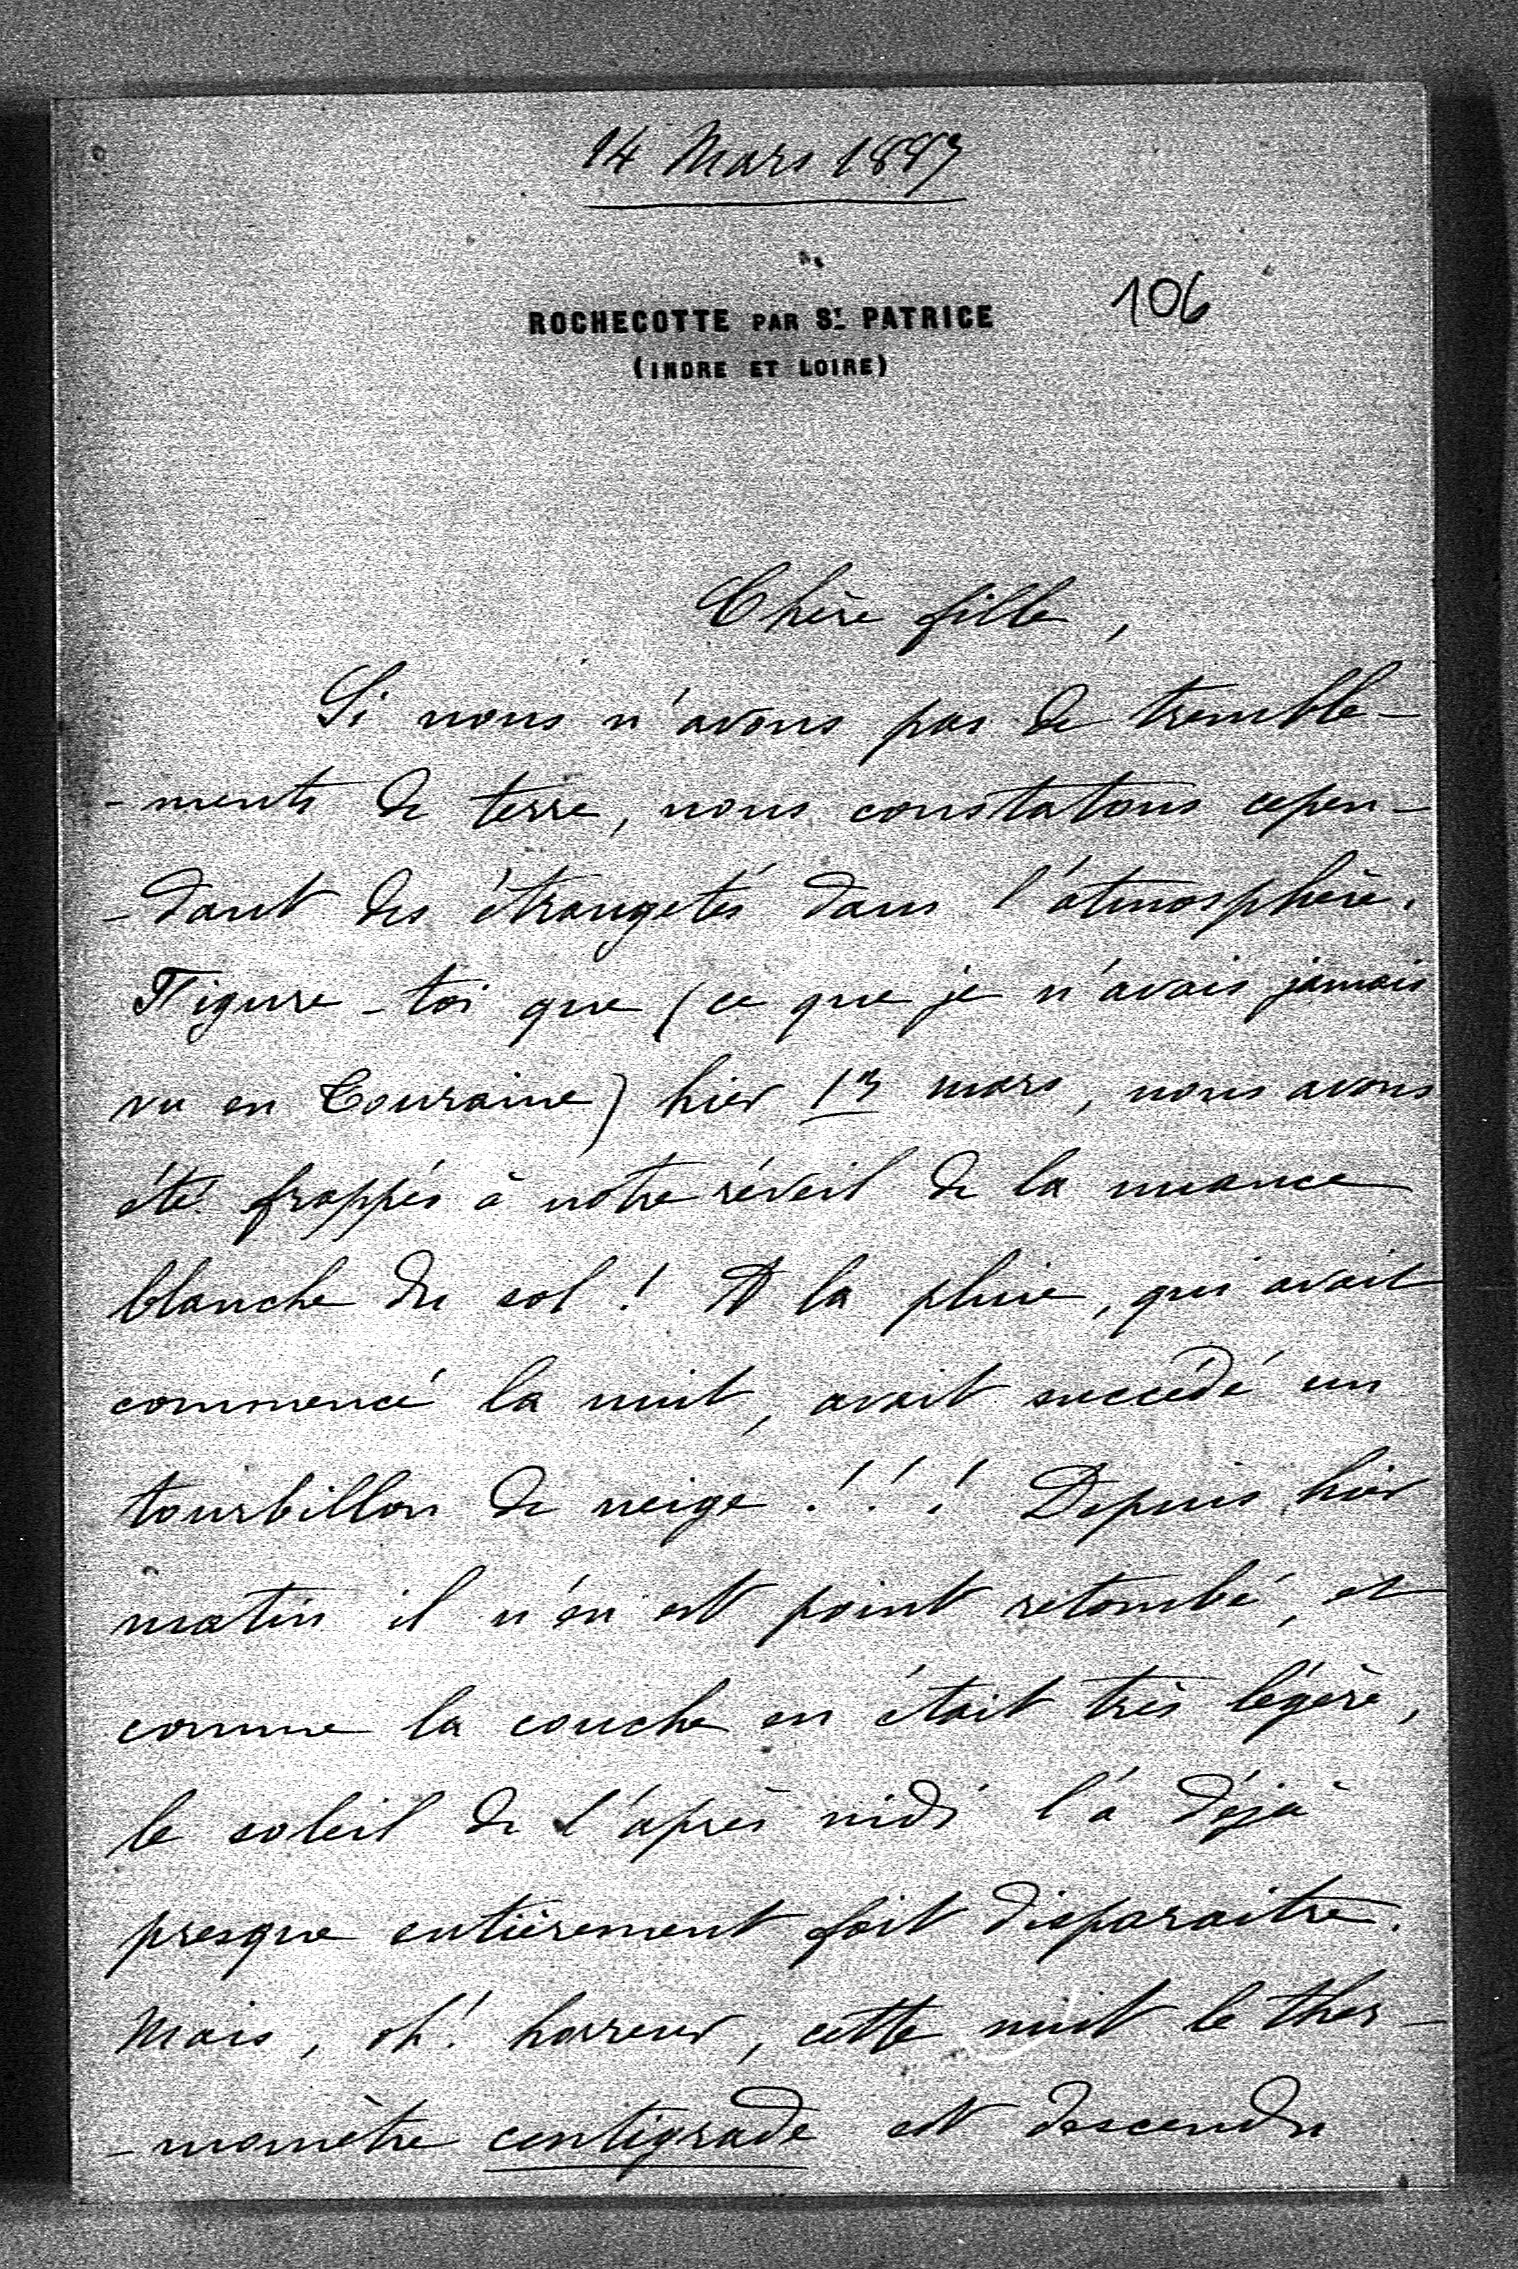 14 Mars 1887
ROCHECOTTE PAR ST PATRICE
106
(INDRE ET LOIRE)
Chère fille,
Si nous n'avons pas de tremble-
-ments de terre, nous constatons cepen-
-dant des étrangetés dans l'atmosphère.
Figure-toi que (ce que je n'avais jamais
vu en Touraine) hier 13 mars, nous avons
été frappés à notre réveil de la nuance
blanche du sol! A la pluie, qui avait
commencé la nuit, avait succédé un
tourbillon de neige !!! Depuis hier
matin il n'en est point retombé, et
comme la couche en était très légère,
le soleil de l'après midi l'a déjà
presque entièrement fait disparaitre.
Mais, oh! horreur, cette nuit le ther-
-momètre centigrade est descendu